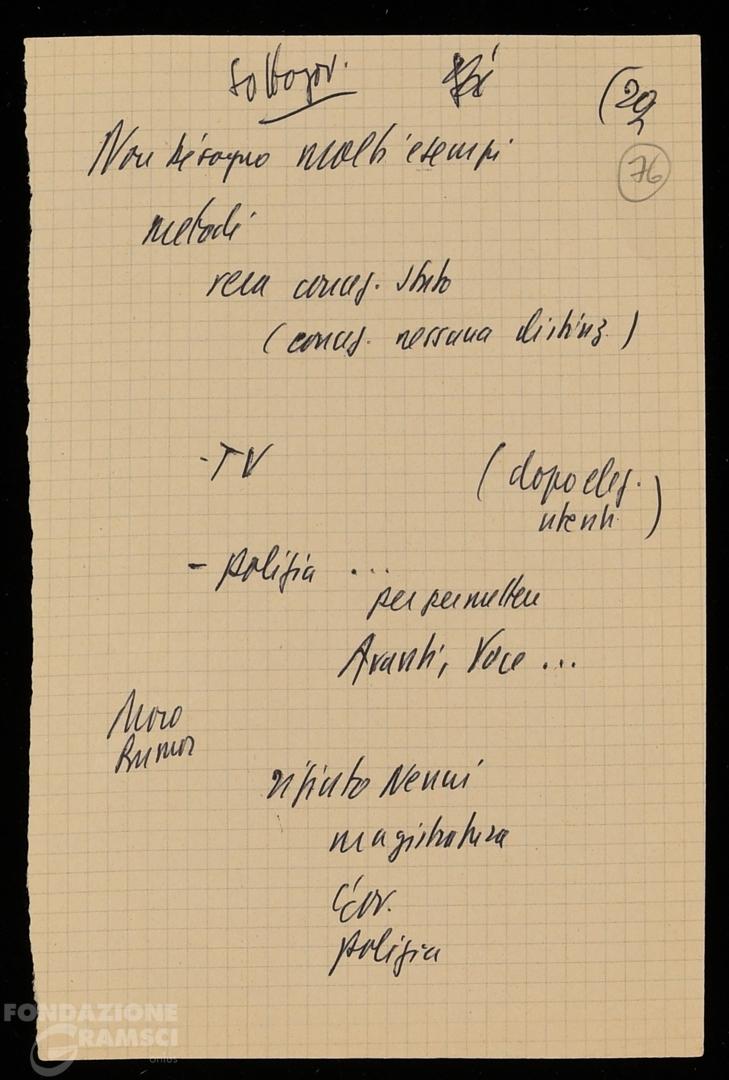 Sottogov.
(29
76
Non bisogno molti esempi
metodi
conces. Stato
(conces. nessuna distinz.)
- TV
(dopo elez.
utenti)
- polizia ...
per permettere
Avanti, Voce ...
Moro
Rumor
rifiuto Nenni
magistratura
polizia
FONDAZIONE
GRAMSCI
onlus